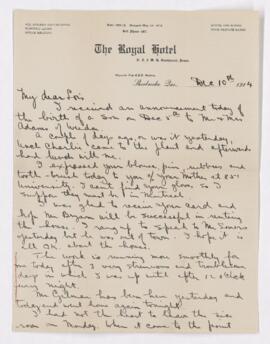 The Royal Hotel
Sherbrooke, Que. Dec 10th 1914
My dear
I received an announcement today of
the birth of a son on Dec 5th to Mr & Mrs
Adams of
A couple of days ago, or was it yesterday,
Noel Charlie came to the plant and afterwards
had lunch with me.
I expressed your blouse, pin, rubbers and
tooth-brush today to you of your Mother at 851
University. I can't find your gloves, so I
suppose they must be in Montreal.
I was glad to receive your card and
hope Mr Bryson will be successful in renting
the house. I rang up to speak to Mr
yesterday but he was out of town. I hope it is
all OK about the house.
The work is running more smoothly for
me today after 3 very strenuous and troublesome
days in which I was up until after 12 o'clock
every night.
Mr has been here yesterday and
today and went home again tonight.
I had not the heart to the
on Monday. When it came to the point